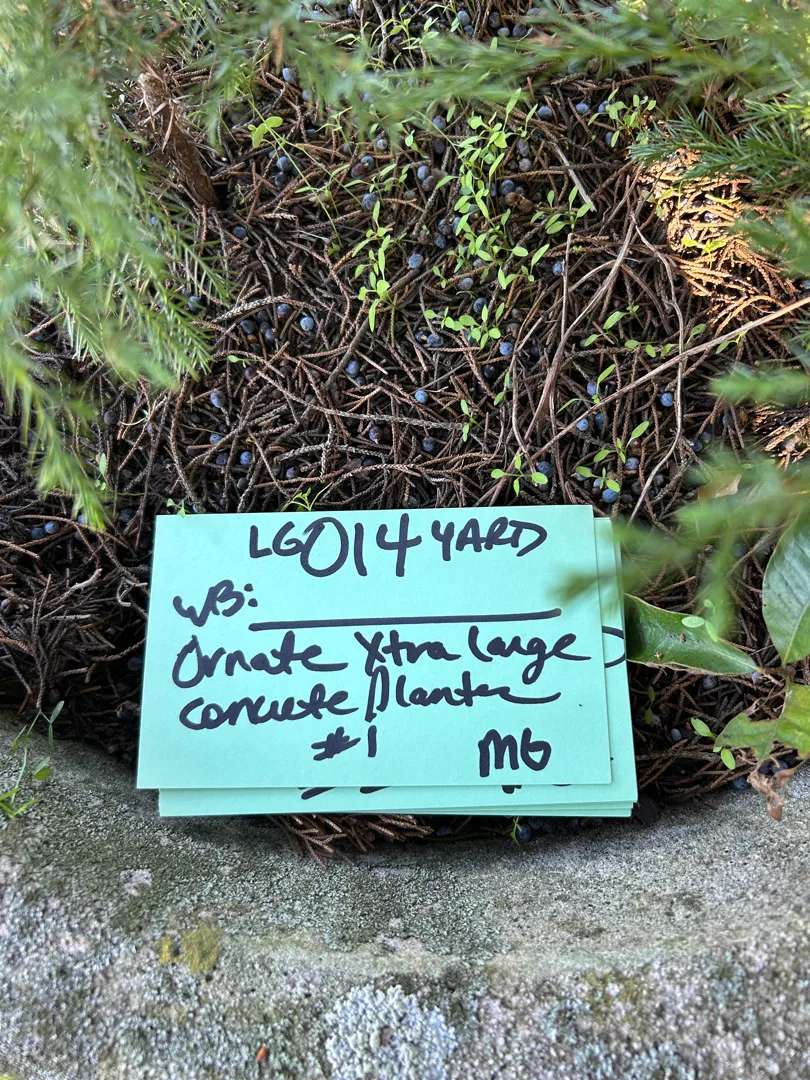 LG014 YARD
WB:
Ornate Xtra large
concrete Planter
#1 MG